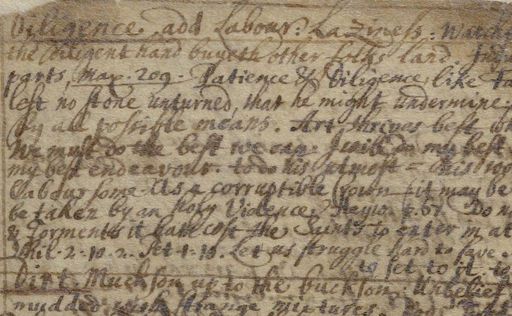 Diligence. add Labour: Laziness: Watch
the diligent hand buyeth other folks land.
parts, Max. 209. Patience & Diligence, like
left no stone unturned, that he might undermine
by all possible means. Art thrives best
We must do the best we can. I will do my best
my best endeavour. to do his utmost =
Labour some. As a corruptible Crown it may be
be taken by an Holy Violence, p. 67. Do
& Torments it hath cost the Saints to enter in at
Phil. 2. 10. 2. Let us struggle hard to save
to set to it. to
Dirt. Muckson up to the buckson. Unbelief
mudded with strange mixtures.